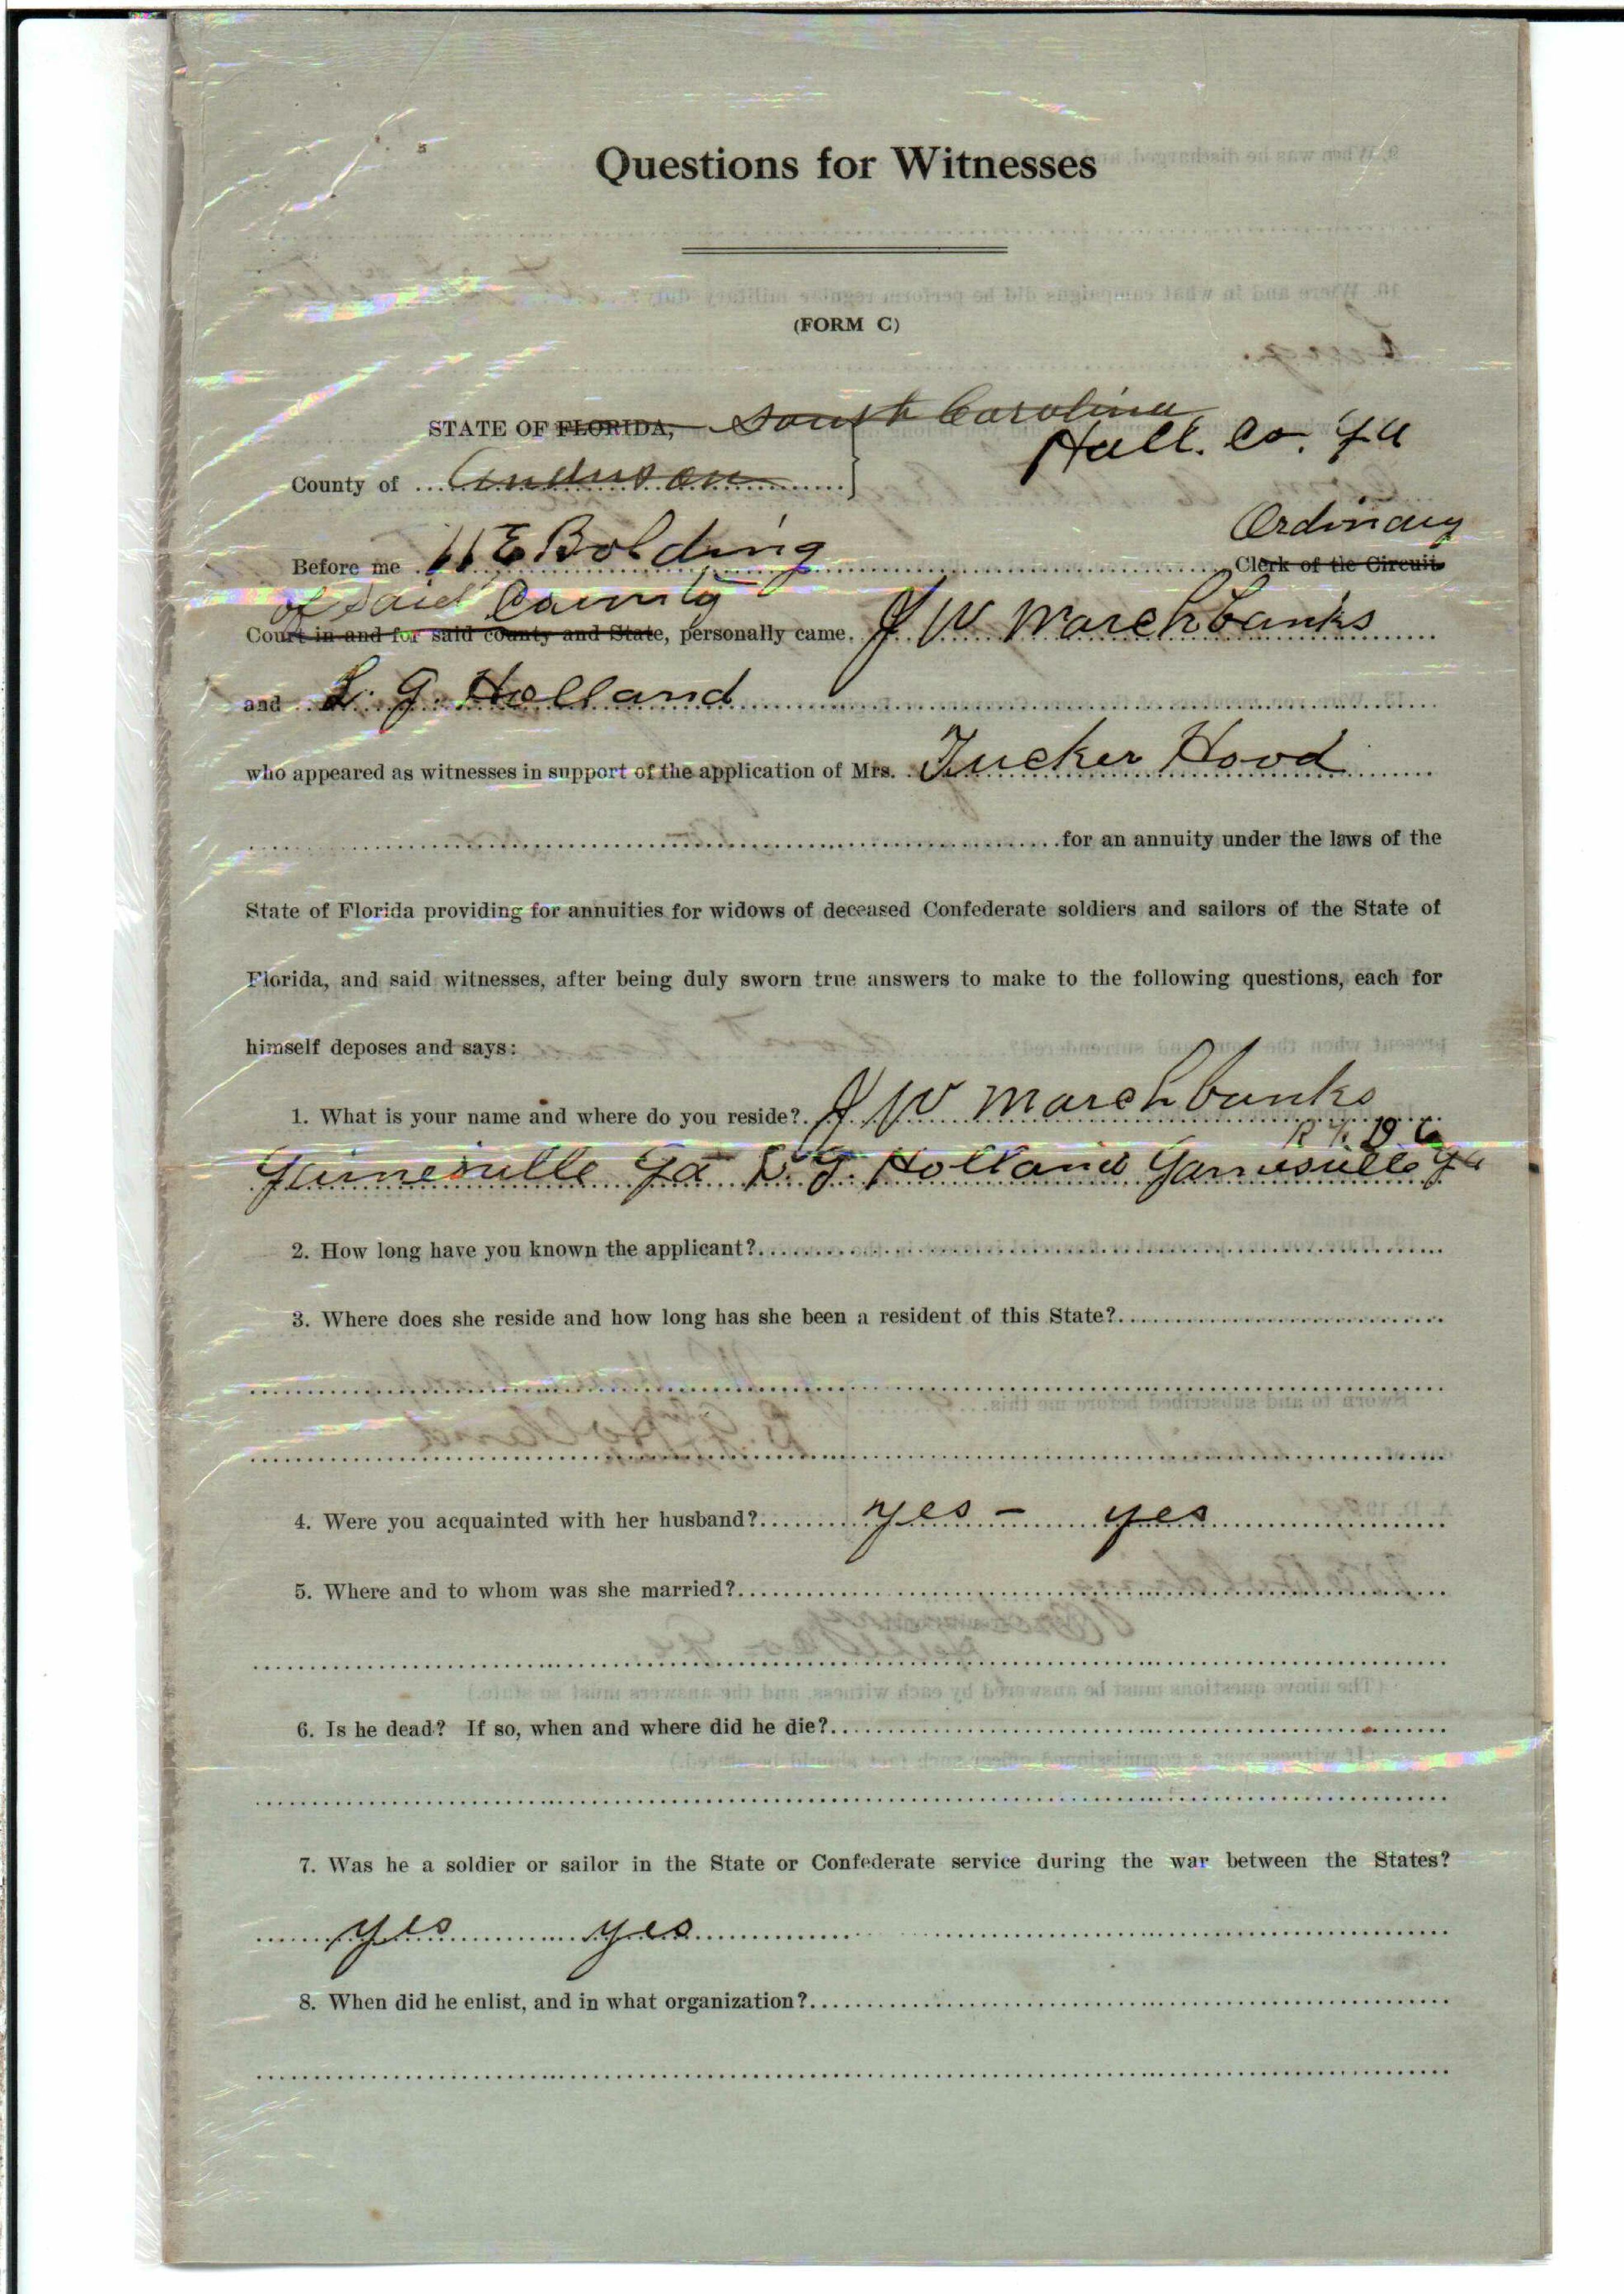 Questions for Witnesses
(FORM C)
STATE OF FLORIDA, South Carolina
Hall. Co. Ga
County of Anderson
Ordinary
Before me W E Bolding Clerk of the Circuit
of said County
Court in and for said county and State, personally came J W Marchbanks
and L. G. Holland
who appeared as witnesses in support of the application of Mrs. Tucker Hood
for an annuity under the laws of the
State of Florida providing for annuities for widows of deceased Confederate soldiers and sailors of the State of
Florida, and said witnesses, after being duly sworn true answers to make to the following questions, each for
himself deposes and says:
1. What is your name and where do you reside? J W Marchbanks
Gainesville Ga L. G. Holland Gainesville Ga
2. How long have you known the applicant?
3. Where does she reside and how long has she been a resident of this State?
4. Were you acquainted with her husband? yes - yes
5. Where and to whom was she married?
6. Is he dead? If so, when and where did he die?
7. Was he a soldier or sailor in the State or Confederate service during the war between the States?
yes yes
8. When did he enlist, and in what organization?